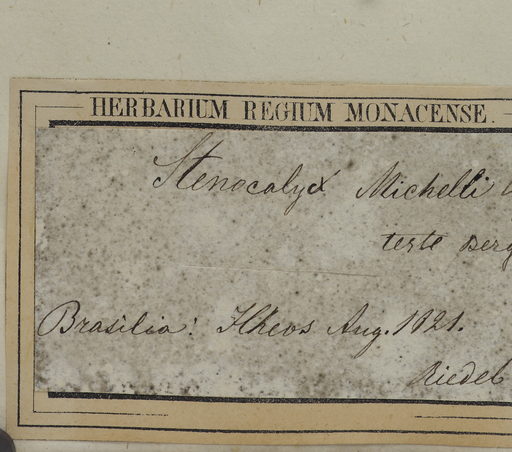 HERBARIUM REGIUM MONACENSE.
Stenocalyx Michelli
teste Berg
Brasilia: Ilheos Aug. 1821.
Riedel